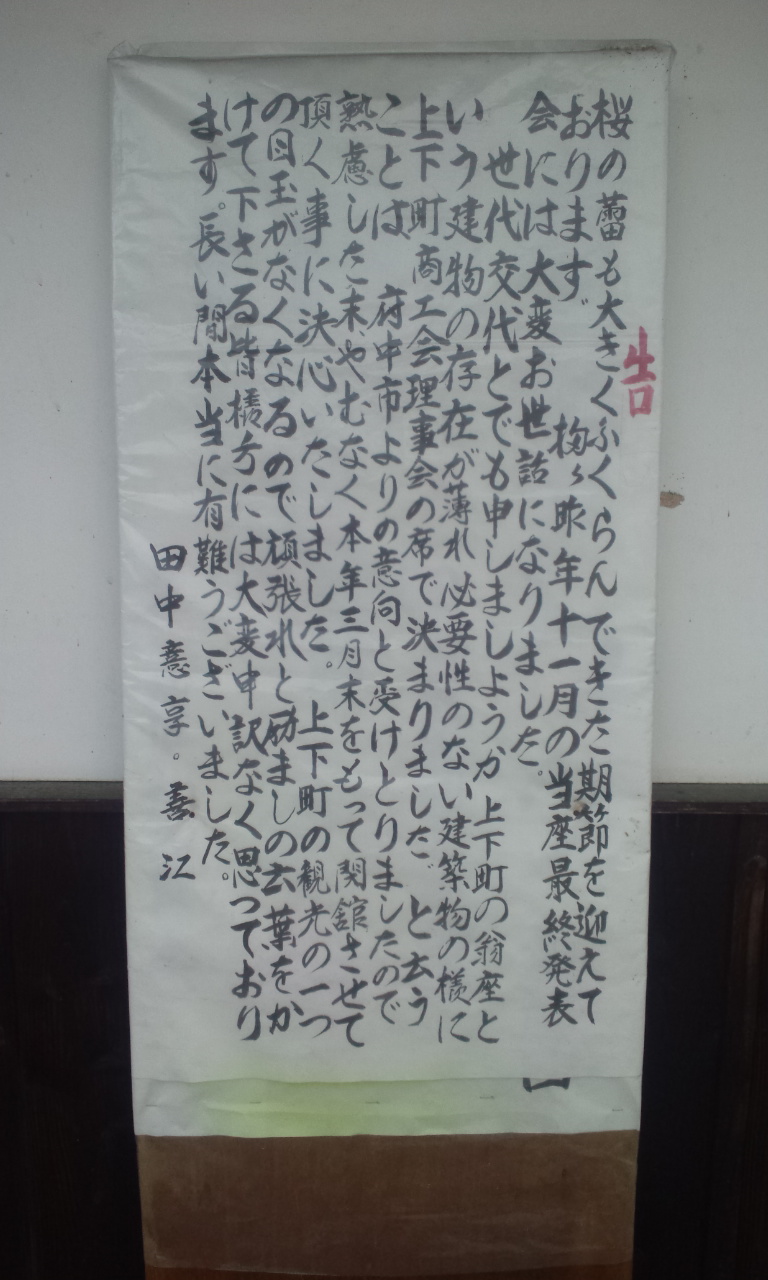 告
桜の蕾も大きくふくらんできた期節を迎えて
おります。拘々昨年十一月の当座最終発表
会には大変お世話になりました。
世代交代とでも申しましようか上下町の翁座と
いう建物の存在が薄れ必要性のない建築物の様に
上下町商工会理事会の席で決まりました。と云う
ことは府中市よりの意向と受けとりましたので
熟慮した末、やむなく本年三月末をもって閉舘させて
頂く事に決心いたしました。上下町の観光の一つ
の目玉がなくなるので頑張れと励ましの云葉をか
けて下さる皆様方には大変申訳なく思っており
ます。長い間本当に有難うございました。
田中意享。善江